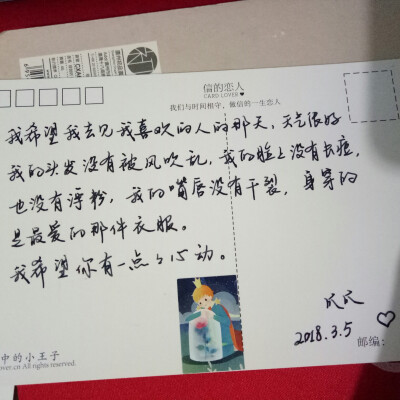 信的恋人
CARD LOVER
我们与时间相守，做信的一生恋人
我希望我去见我喜欢的人的那天，天气很好
我的头发没有被风吹乱，我的脸上没有长痘，
也没有浮粉，我的嘴唇没有干裂，身穿的
是最爱的那件衣服。
我希望你有一点点心动。
爪爪
2018.3.5
中的小王子
邮编：
over.co All rights reserved.